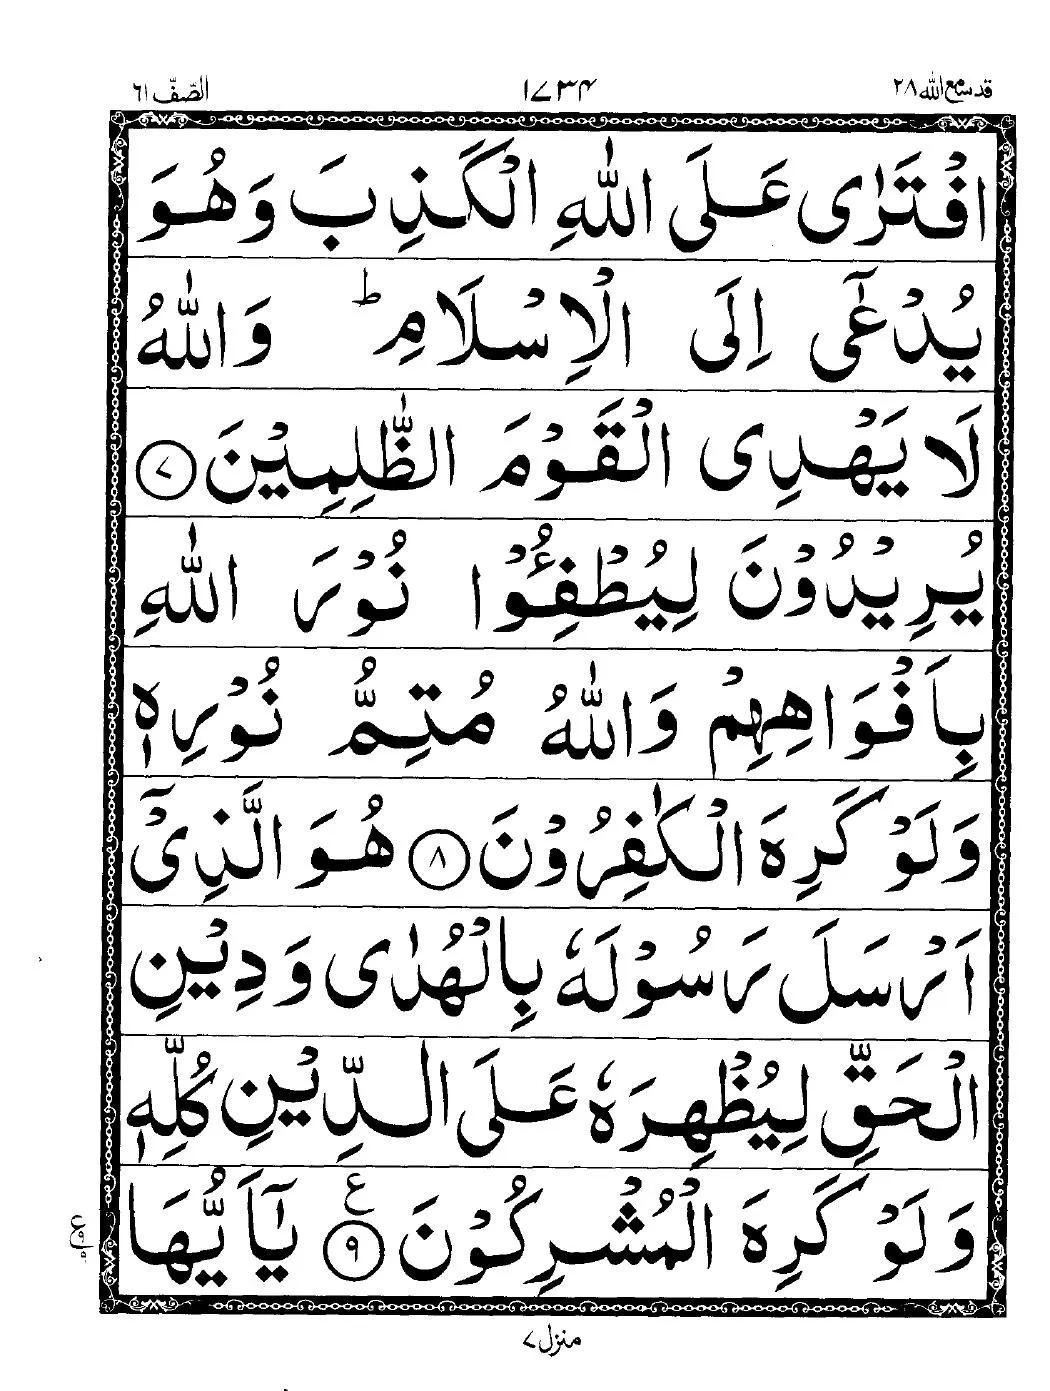 قد سمع الله ٢٨
١٧٣٤
الصّفّ ٦١
افْتَرٰى عَلَى اللّٰهِ الْكَذِبَ وَهُوَ
يُدْعٰٓى اِلَى الْاِسْلَامِ ؕ وَاللّٰهُ
لَا يَهْدِى الْقَوْمَ الظّٰلِمِيْنَ ۝٧
يُرِيْدُوْنَ لِيُطْفِـُٔوْا نُوْرَ اللّٰهِ
بِاَفْوَاهِهِمْ وَاللّٰهُ مُتِمُّ نُوْرِهٖ
وَلَوْ كَرِهَ الْكٰفِرُوْنَ ۝٨ هُوَ الَّذِىْٓ
اَرْسَلَ رَسُوْلَهٗ بِالْهُدٰى وَدِيْنِ
الْحَقِّ لِيُظْهِرَهٗ عَلَى الدِّيْنِ كُلِّهٖ
وَلَوْ كَرِهَ الْمُشْرِكُوْنَ ۝٩ ع يٰٓاَيُّهَا
منزل ٧